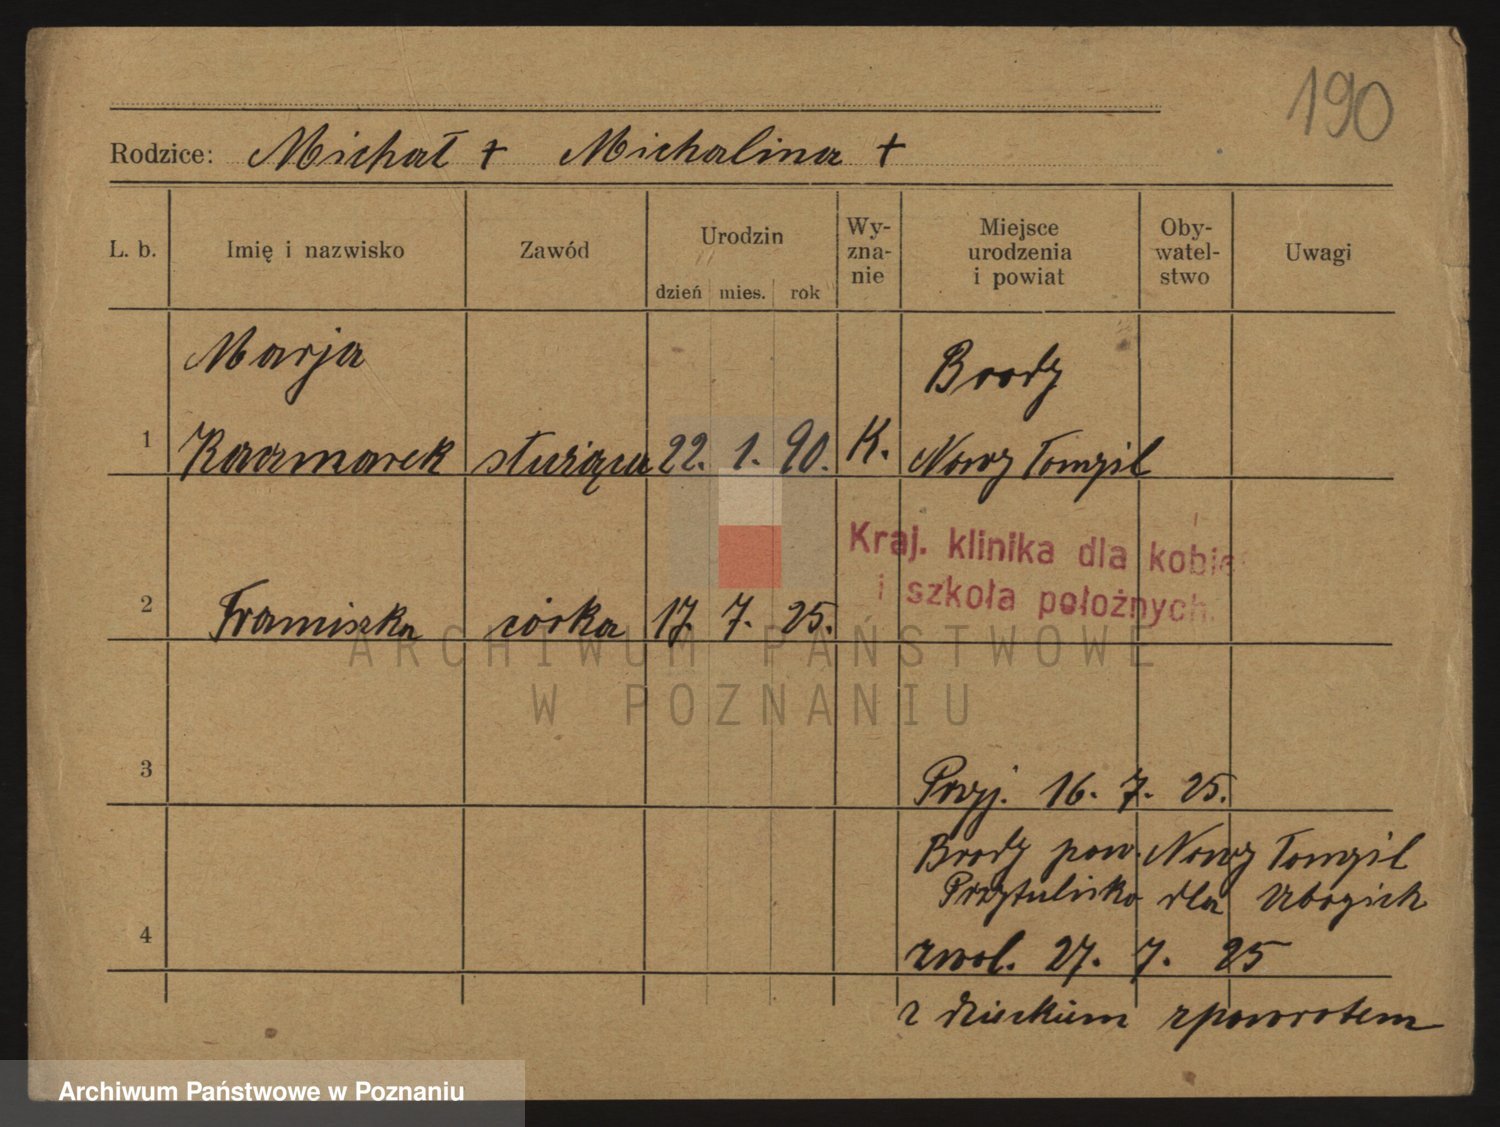 190
Rodzice: Michał + Michalina +
L. b. Imię i nazwisko Zawód Urodzin dzień mies. rok Wy-zna-nie Miejsce urodzenia i powiat Oby-watel-stwo Uwagi
Marja Brody
1 Kaczmarek służąca 22. 1. 90. K. Nowy Tomyśl
Kraj. klinika dla kobie
i szkoła położnych.
2 Franciszka córka 17. 7. 25.
ARCHIWUM PAŃSTWOWE
W POZNANIU
3 Przyj. 16. 7. 25.
Brody pow. Nowy Tomyśl
Przytulisko dla Ubogich
4 zwol. 27. 7. 25
z dzieckiem zpowrotem
Archiwum Państwowe w Poznaniu